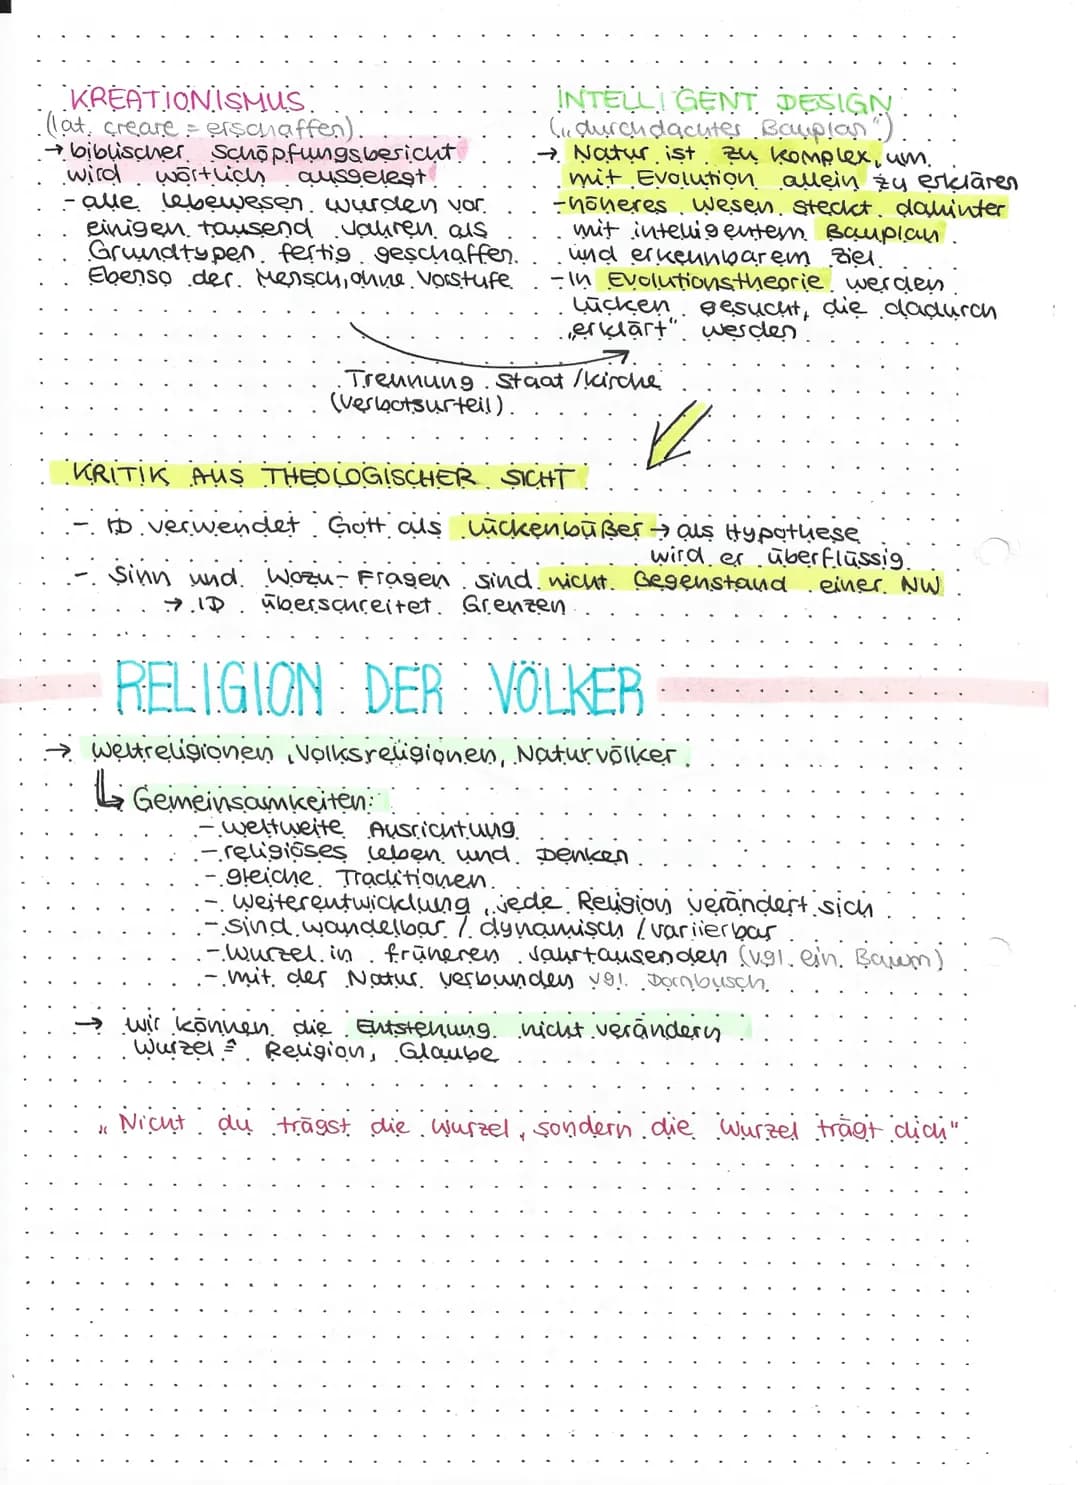 KREATIONISMUS
(lat. creare = erschaffen)
→ biblischer Schöpfungsbericht
wird wörtlich ausgelegt
- alle Lebewesen wurden vor
einigen tausend Jahren als
Grundtypen fertig geschaffen.
Ebenso der Mensch, ohne Vorstufe
INTELLIGENT DESIGN
(„durchdachter Bauplan")
→ Natur ist zu komplex, um
mit Evolution allein zu erklären
- höheres Wesen steckt dahinter
mit intelligentem Bauplan
und erkennbarem Ziel
- In Evolutionstheorie werden
Lücken gesucht, die dadurch
„erklärt" werden
Trennung Staat / Kirche
(Verbotsurteil)
KRITIK AUS THEOLOGISCHER SICHT
- ID verwendet Gott als Lückenbüßer → als Hypothese
wird er überflüssig
- Sinn und Wozu-Fragen sind nicht Gegenstand einer NW
→ ID überschreitet Grenzen
RELIGION DER VÖLKER
→ Weltreligionen, Volksreligionen, Naturvölker
↳ Gemeinsamkeiten:
- weltweite Ausrichtung
- religiöses Leben und Denken
- gleiche Traditionen
- Weiterentwicklung, jede Religion verändert sich
- sind wandelbar / dynamisch / variierbar
- Wurzel in früheren Jahrtausenden (vgl. ein Baum)
- mit der Natur verbunden vgl. Dornbusch
→ wir können die Entstehung nicht verändern
Wurzel ≙ Religion, Glaube
„Nicht du trägst die Wurzel, sondern die Wurzel trägt dich"